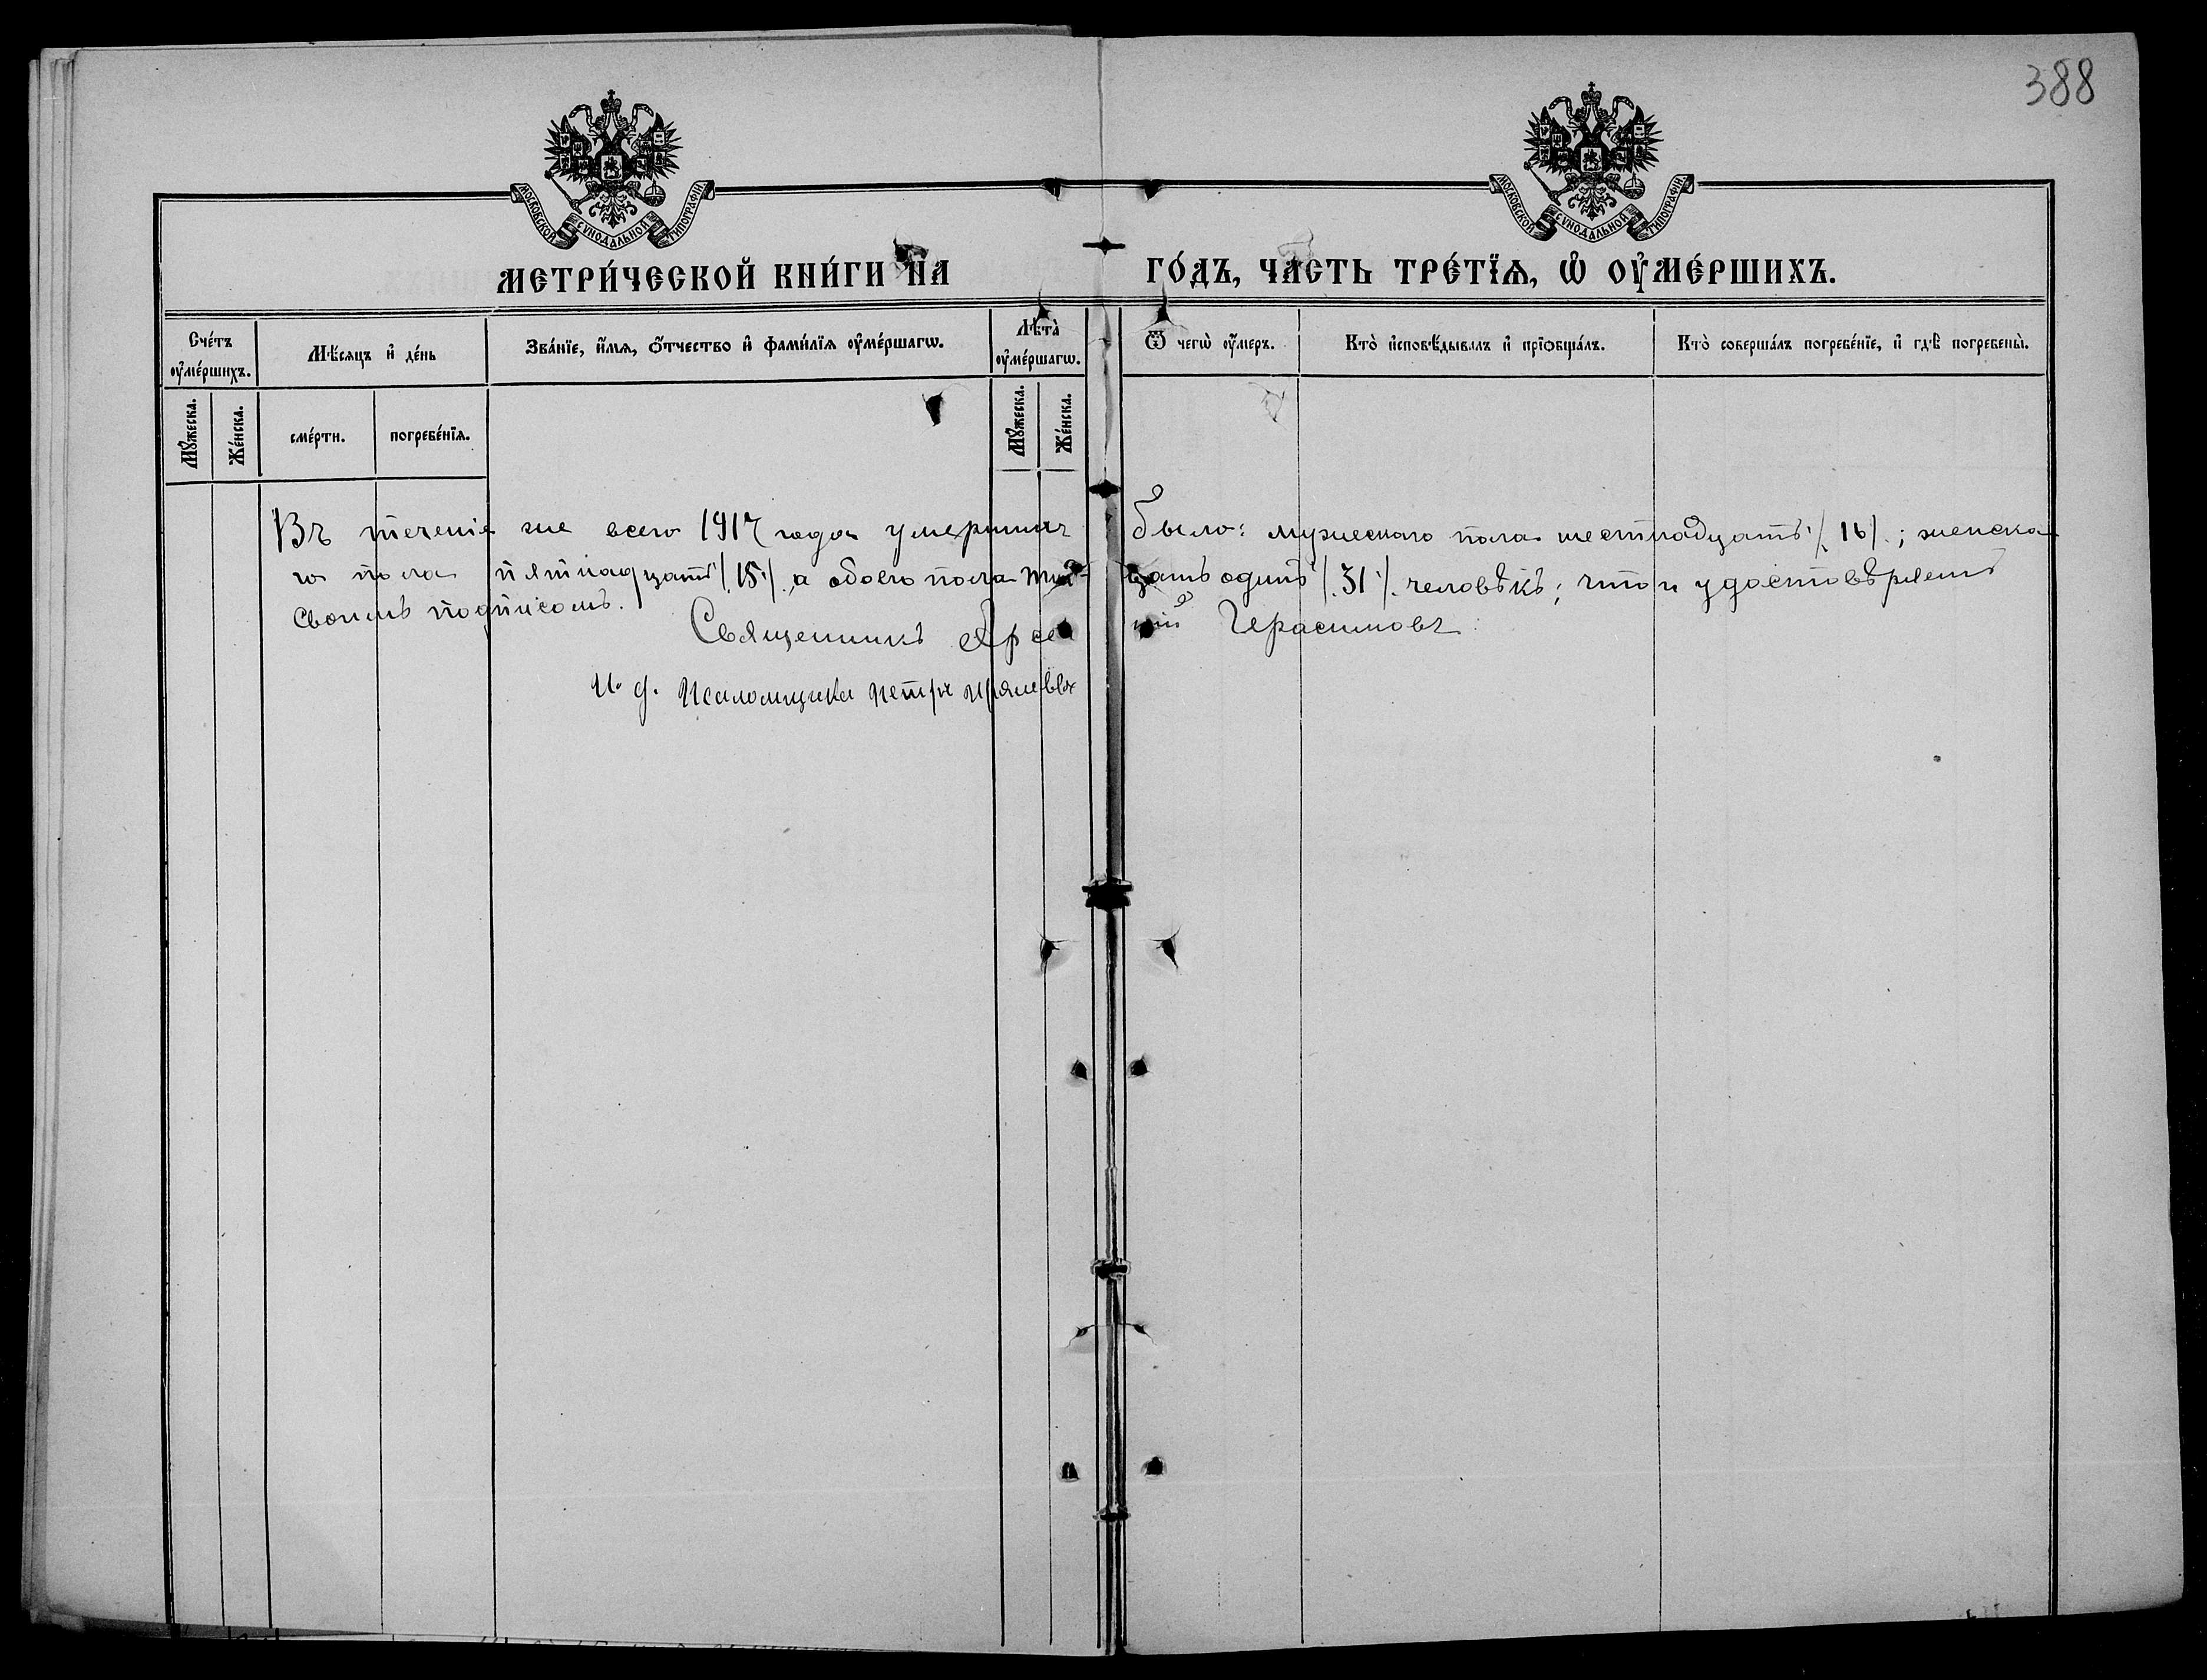 388
МОСКОВСКОЙ СѴНОДАЛЬНОЙ ТИПОГРАФІИ.
МОСКОВСКОЙ СѴНОДАЛЬНОЙ ТИПОГРАФІИ.
МЕТРИ́ЧЕСКОЙ КНИ́ГИ НА ГО́ДЪ, ЧА́СТЬ ТРЕ́ТЇѦ, Ѡ҆ ОУ҆МЕ́РШИХЪ.
Сче́тъ оу҆ме́ршихъ.
Мѣ́сяцъ и҆ де́нь
Зва́нїе, и҆́мѧ, ѻ҆́тчество и҆ фами́лїѧ оу҆ме́ршагѡ.
Лѣ́та оу҆ме́ршагѡ.
Ѿ чегѡ̀ оу҆́меръ.
Кто̀ и҆сповѣ́дывалъ и҆ прїѡбща́лъ.
Кто̀ соверша́лъ погребе́нїе, и҆ гдѣ̀ погребены̀.
Мꙋ́жеска.
Же́нска.
сме́рти.
погребе́нїѧ.
Мꙋ́жеска.
Же́нска.
Въ теченіе же всего 1917 года умершихъ было: мужескаго пола шестнадцать /.16/.; женска-
го пола пятнадцать /.15./., а обоего пола трид-цать одинъ /.31./. человѣкъ; что и удостовѣряемъ
своимъ подписомъ.
Священникъ Арсеній Герасимовъ.
И. д. Псаломщика Петръ